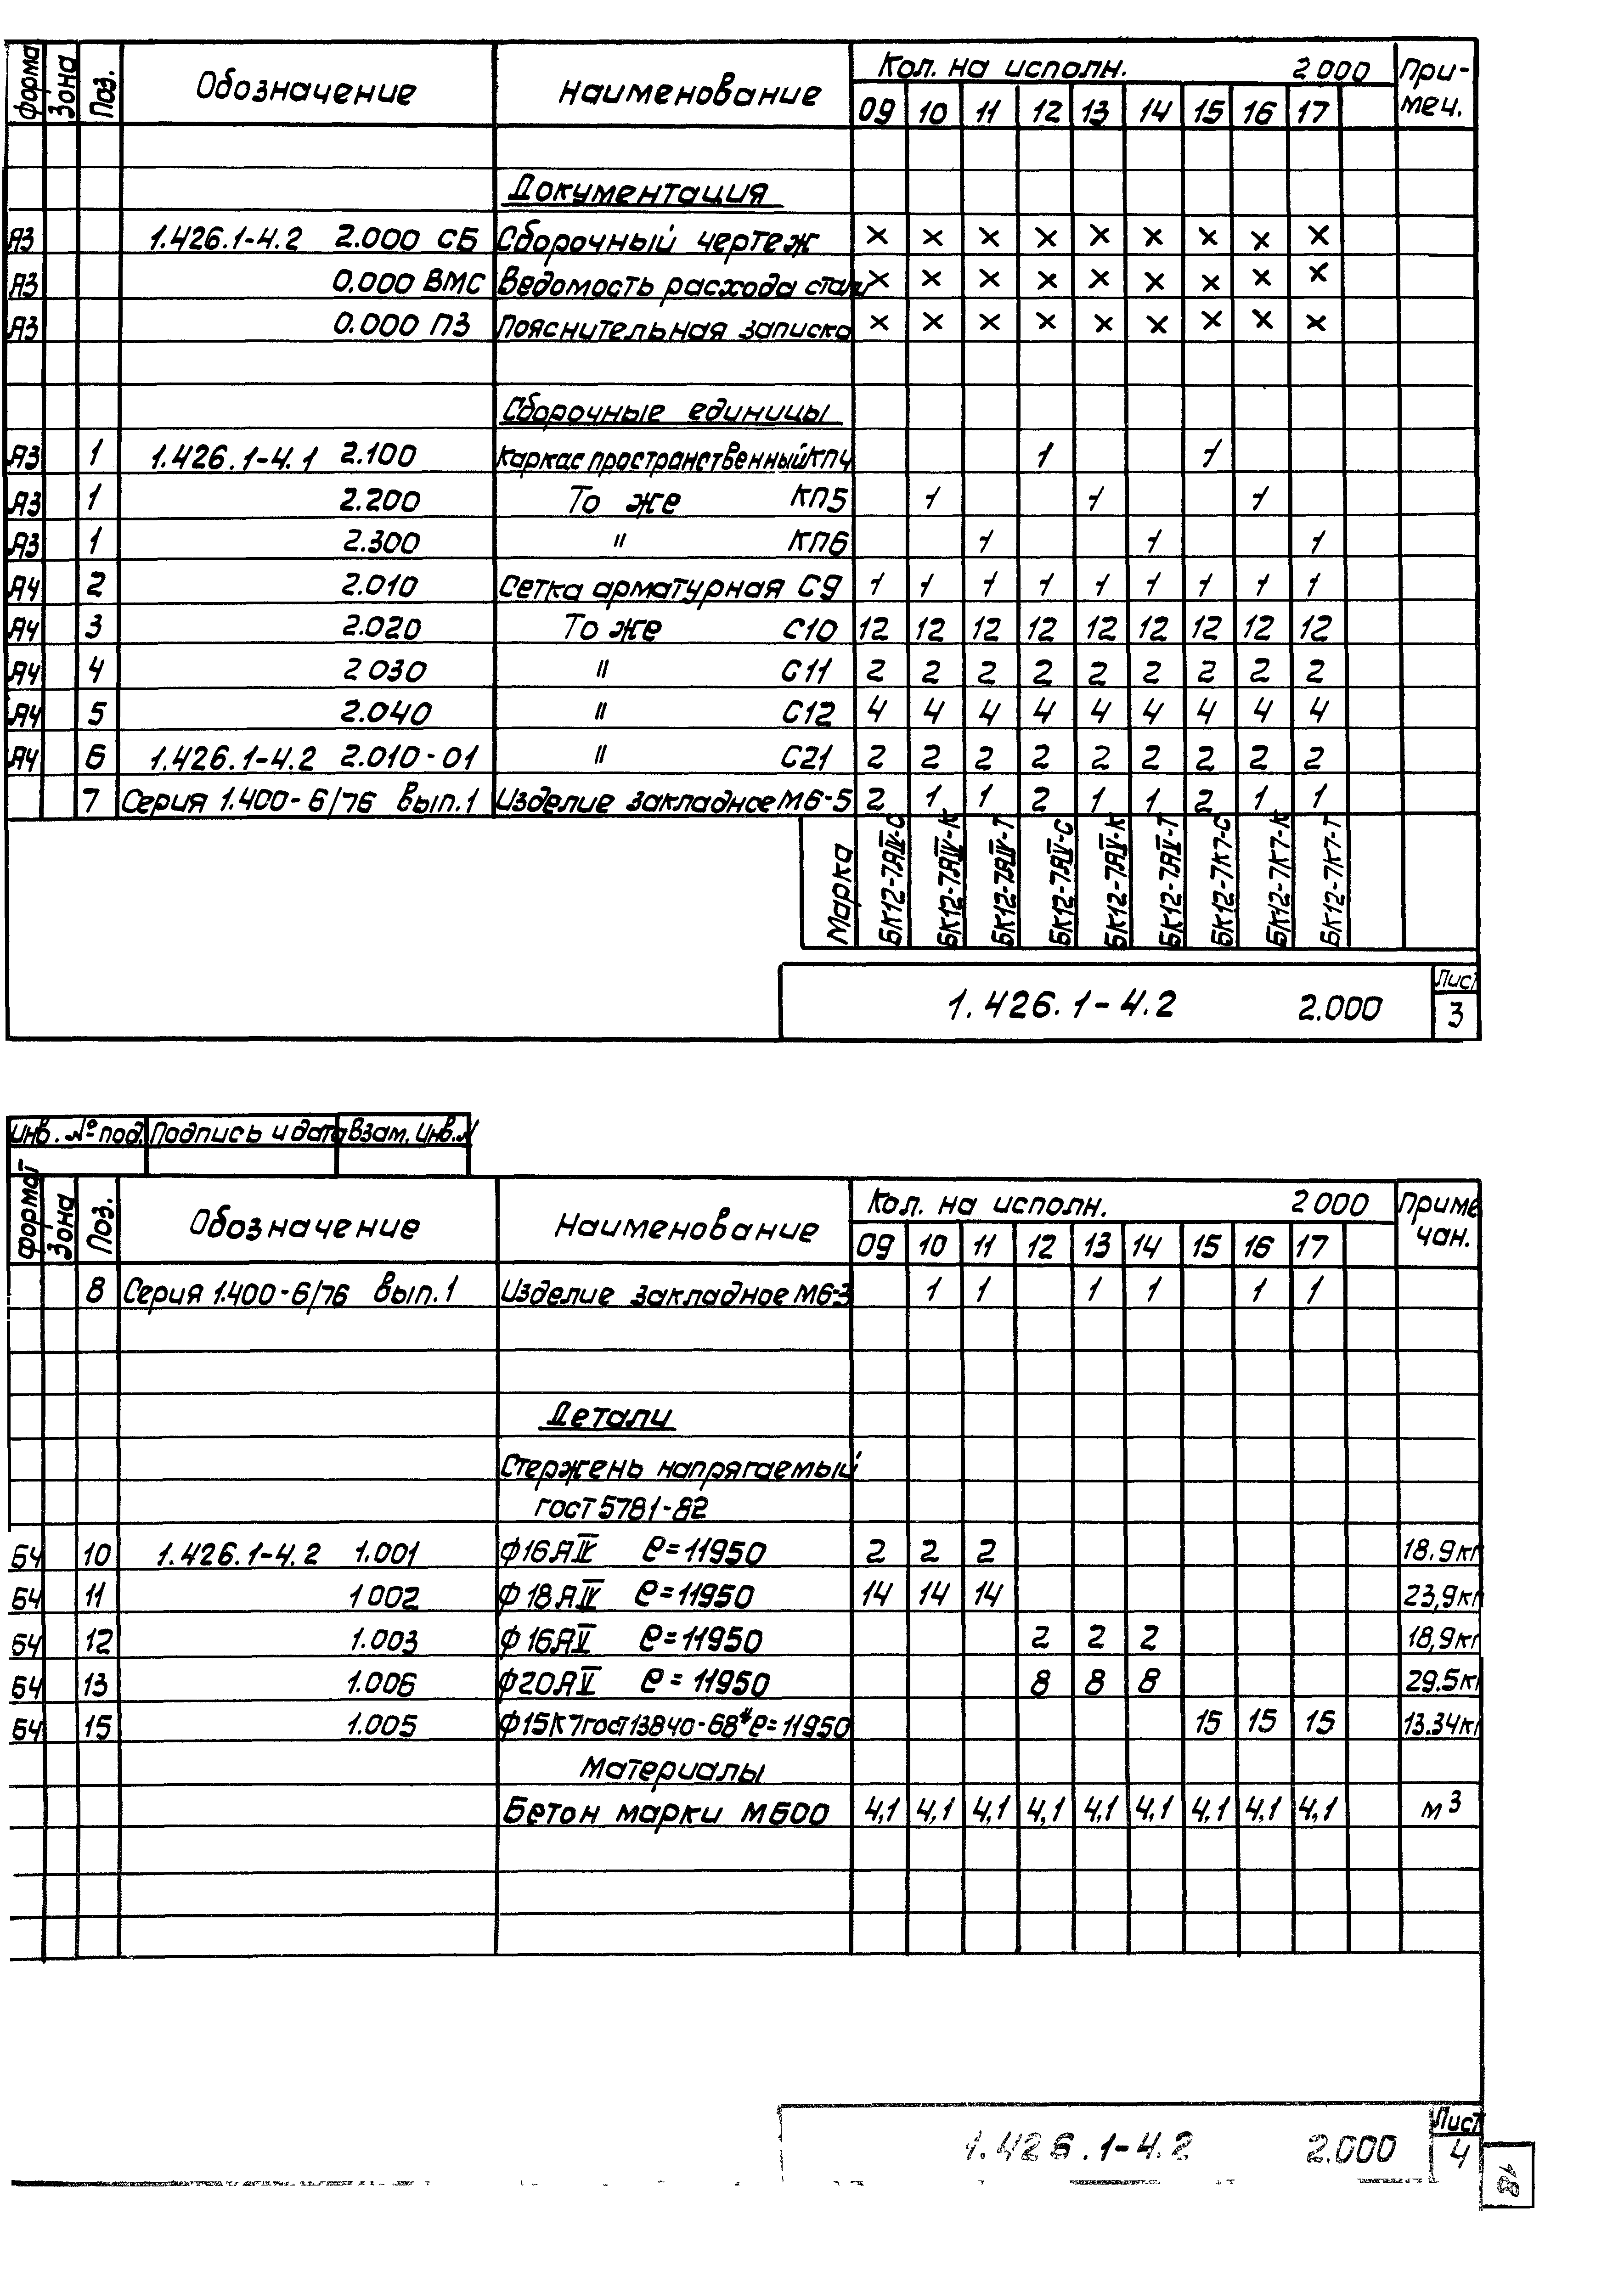 Формат Зона Поз. Обозначение Наименование Кол. на исполн. 2 000 При-
09 10 11 12 13 14 15 16 17 меч.
Документация
А3 1.426.1-4.2 2.000 СБ Сборочный чертеж × × × × × × × × ×
А3 0.000 ВМС Ведомость расхода стали × × × × × × × × ×
А3 0.000 ПЗ Пояснительная записка × × × × × × × × ×
Сборочные единицы
А3 1 1.426.1-4.1 2.100 Каркас пространственный КП4 1 1
А3 1 2.200 То же КП5 1 1 1
А3 1 2.300 " КП6 1 1 1
А4 2 2.010 Сетка арматурная С9 1 1 1 1 1 1 1 1 1
А4 3 2.020 То же С10 12 12 12 12 12 12 12 12 12
А4 4 2 030 " С11 2 2 2 2 2 2 2 2 2
А4 5 2.040 " С12 4 4 4 4 4 4 4 4 4
А4 6 1.426.1-4.2 2.010-01 " С21 2 2 2 2 2 2 2 2 2
7 Серия 1.400-6/76 вып.1 Изделие закладное М6-5 2 1 1 2 1 1 2 1 1
Марка БК12-7АIV-С БК12-7АIV-К БК12-7АIV-Т БК12-7АV-С БК12-7АV-К БК12-7АV-Т БК12-7К7-С БК12-7К7-К БК12-7К7-Т
1.426.1-4.2 2.000 Лист
3
Инв. № под. Подпись и дата Взам. Инв. №
Формат Зона Поз. Обозначение Наименование Кол. на исполн. 2 000 Приме
09 10 11 12 13 14 15 16 17 чан.
8 Серия 1.400-6/76 вып.1 Изделие закладное М6-3 1 1 1 1 1 1
Детали
Стержень напрягаемый
ГОСТ 5781-82
БЧ 10 1.426.1-4.2 1.001 ф16АIV ℓ=11950 2 2 2 18.9кг
БЧ 11 1 002 ф18АIV ℓ=11950 14 14 14 23,9кг
БЧ 12 1.003 ф16АV ℓ=11950 2 2 2 18,9кг
БЧ 13 1.006 ф20АV ℓ=11950 8 8 8 29.5кг
БЧ 15 1.005 ф15К7 ГОСТ 13840-68* ℓ=11950 15 15 15 13.34кг
Материалы
Бетон марки М600 4,1 4,1 4,1 4,1 4,1 4,1 4,1 4,1 4,1 м³
1.426.1-4.2 2.000 Лист
4
18